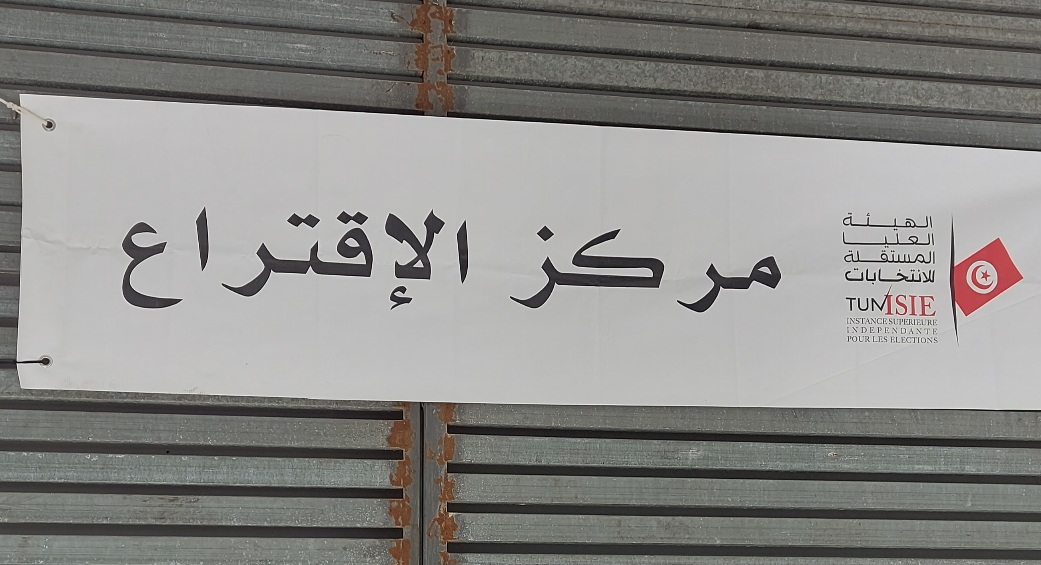 مركز الإقتراع
الهيئة
العليا
المستقلة
للانتخابات
TUNISIE
INSTANCE SUPERIEURE
INDEPENDANTE
POUR LES ELECTIONS